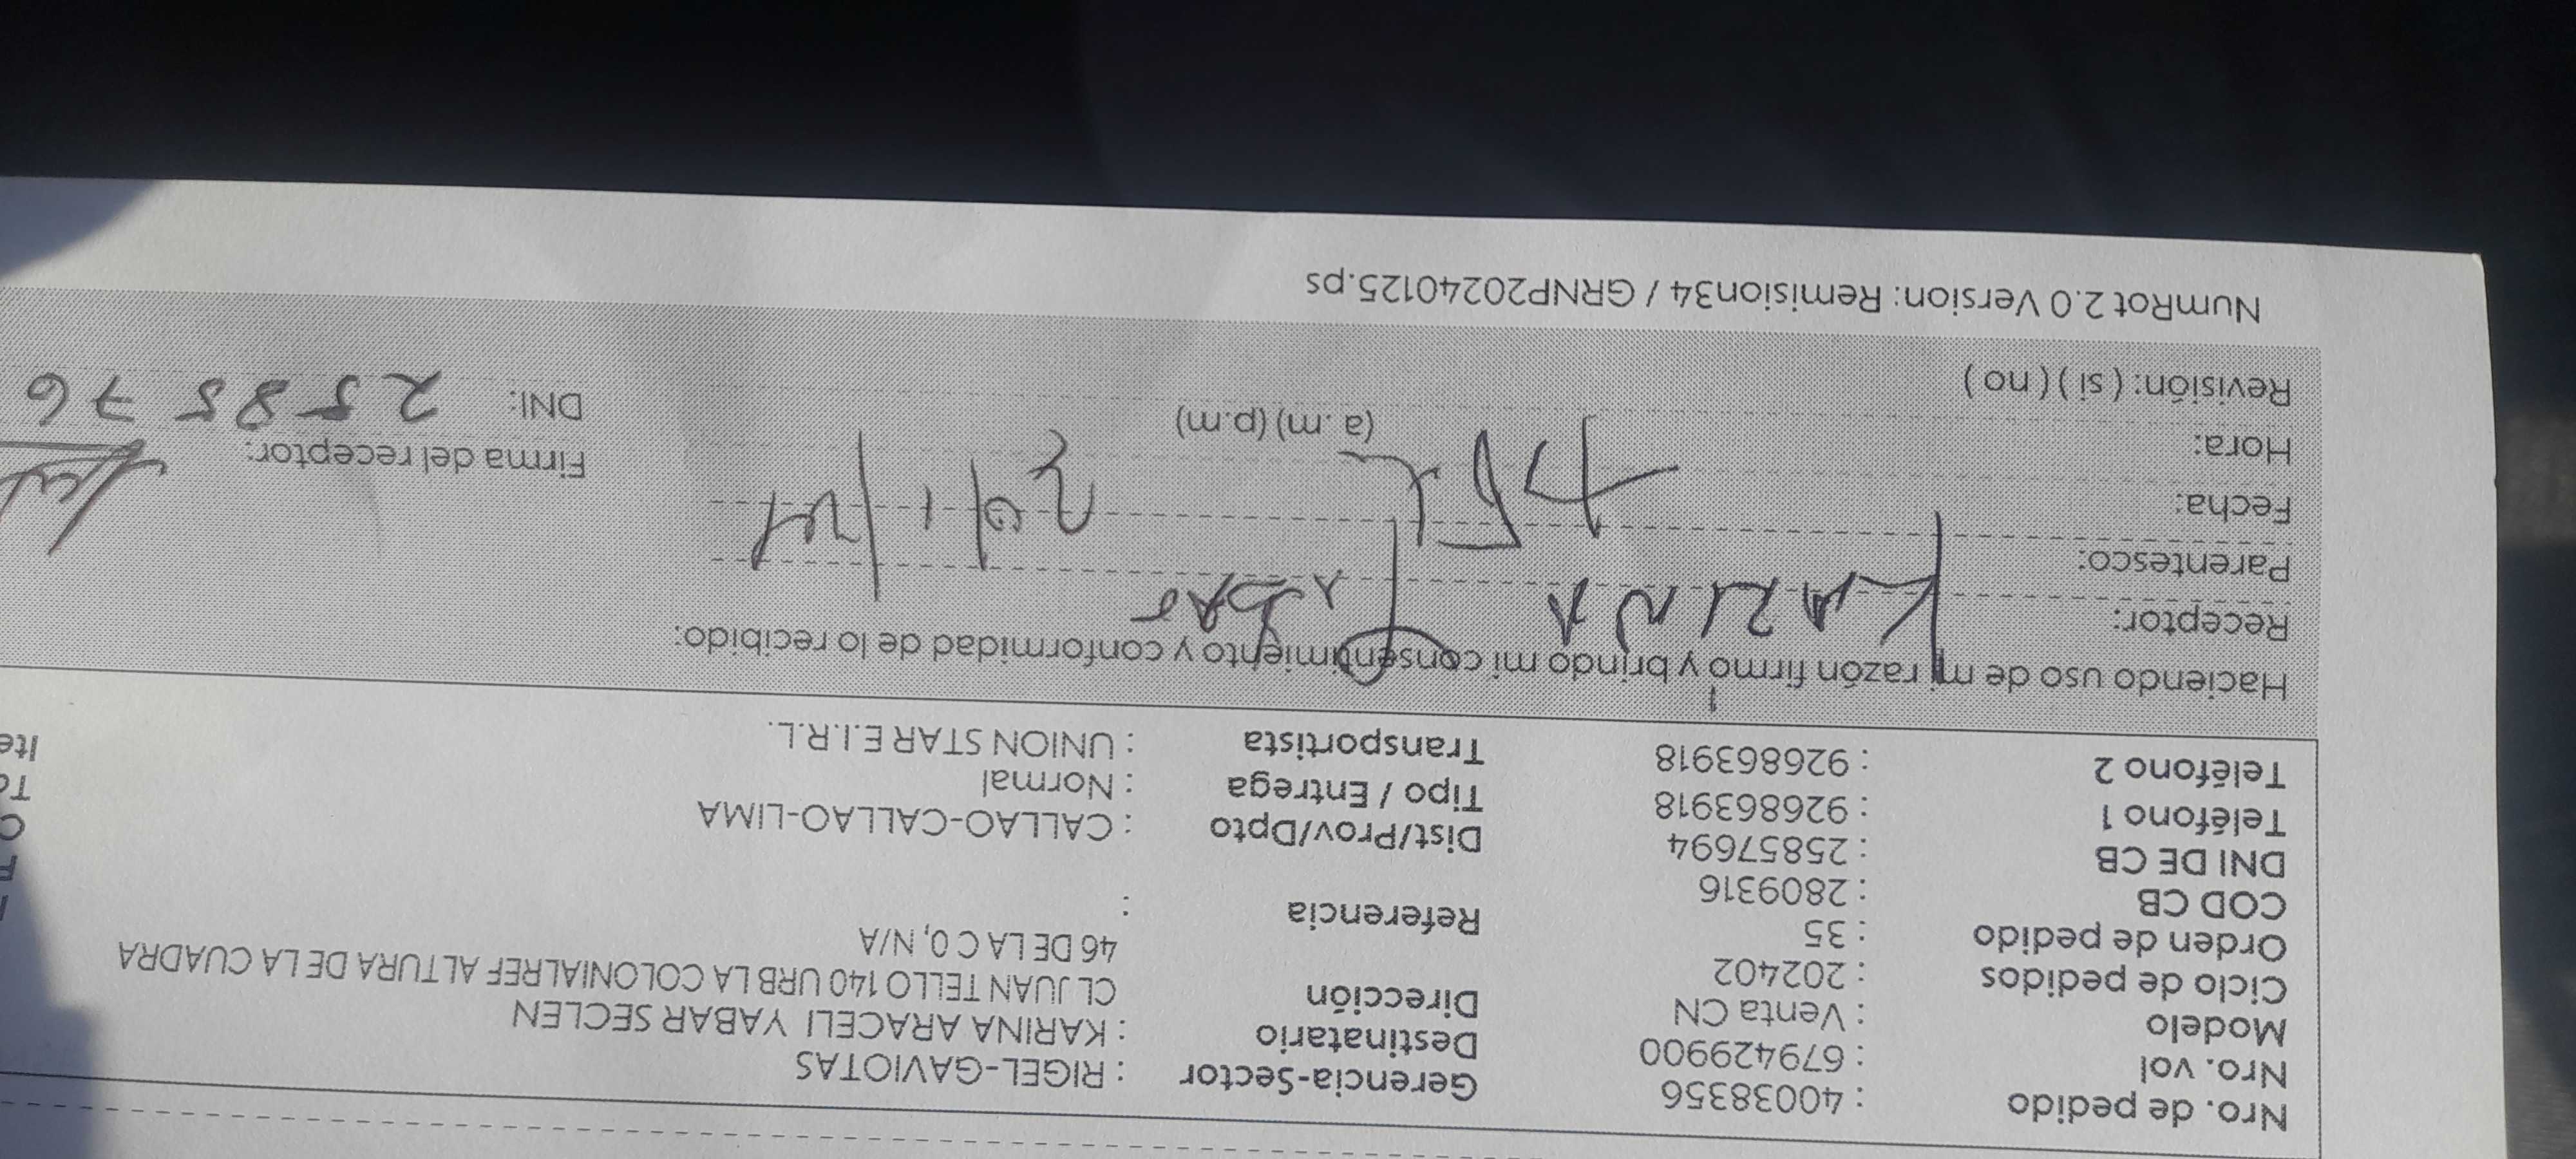 Nro. de pedido : 40038356 Gerencia-Sector : RIGEL-GAVIOTAS
Nro. vol : 679429900 Destinatario : KARINA ARACELI YABAR SECLEN
Modelo : Venta CN Dirección CL JUAN TELLO 140 URB LA COLONIALREF ALTURA DE LA CUADRA
Ciclo de pedidos : 202402 46 DE LA C 0, N/A
Orden de pedido : 35 Referencia :
COD CB : 2809316
DNI DE CB : 25857694 Dist/Prov/Dpto : CALLAO-CALLAO-LIMA
Teléfono 1 : 926863918 Tipo / Entrega : Normal
Teléfono 2 : 926863918 Transportista : UNION STAR E.I.R.L. Ite
Haciendo uso de mi razón firmo y brindo mi consentimiento y conformidad de lo recibido:
Receptor: KARINA
Parentesco:
Fecha:
Hora: (a.m) (p.m) Firma del receptor:
Revisión: ( si ) ( no ) DNI: 258576
NumRot 2.0 Version: Remision34 / GRNP20240125.ps